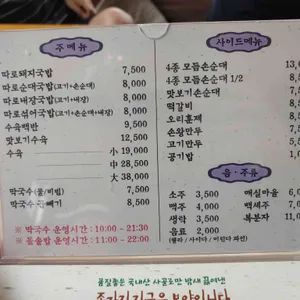 주메뉴
따로돼지국밥 7,500
따로순대국밥(고기+손순대) 8,000
따로내장국밥(고기+내장) 8,000
따로섞어국밥(고기+손순대+내장) 8,000
수육백반 9,500
맛보기수육 12,500
수육 小 19,000
中 28,500
大 38,000
막국수(물/비빔) 7,500
8,500
※ 막국수 운영시간 : 10:00 - 21:30
※ 돌솥밥 운영시간 : 11:00 - 22:00
사이드메뉴
4종 모듬손순대
4종 모듬손순대 1/2 8,000
맛보기손순대
떡갈비
오리훈제
손왕만두
고기만두
공기밥
음·주류
소주 3,500
맥주 4,000
생막 3,500
음료 2,000
(콜라 / 사이다 / 어린다 파인)
매실마을
백세주
복분자
품질좋은 국내산 사골로만 밤새 끓여낸